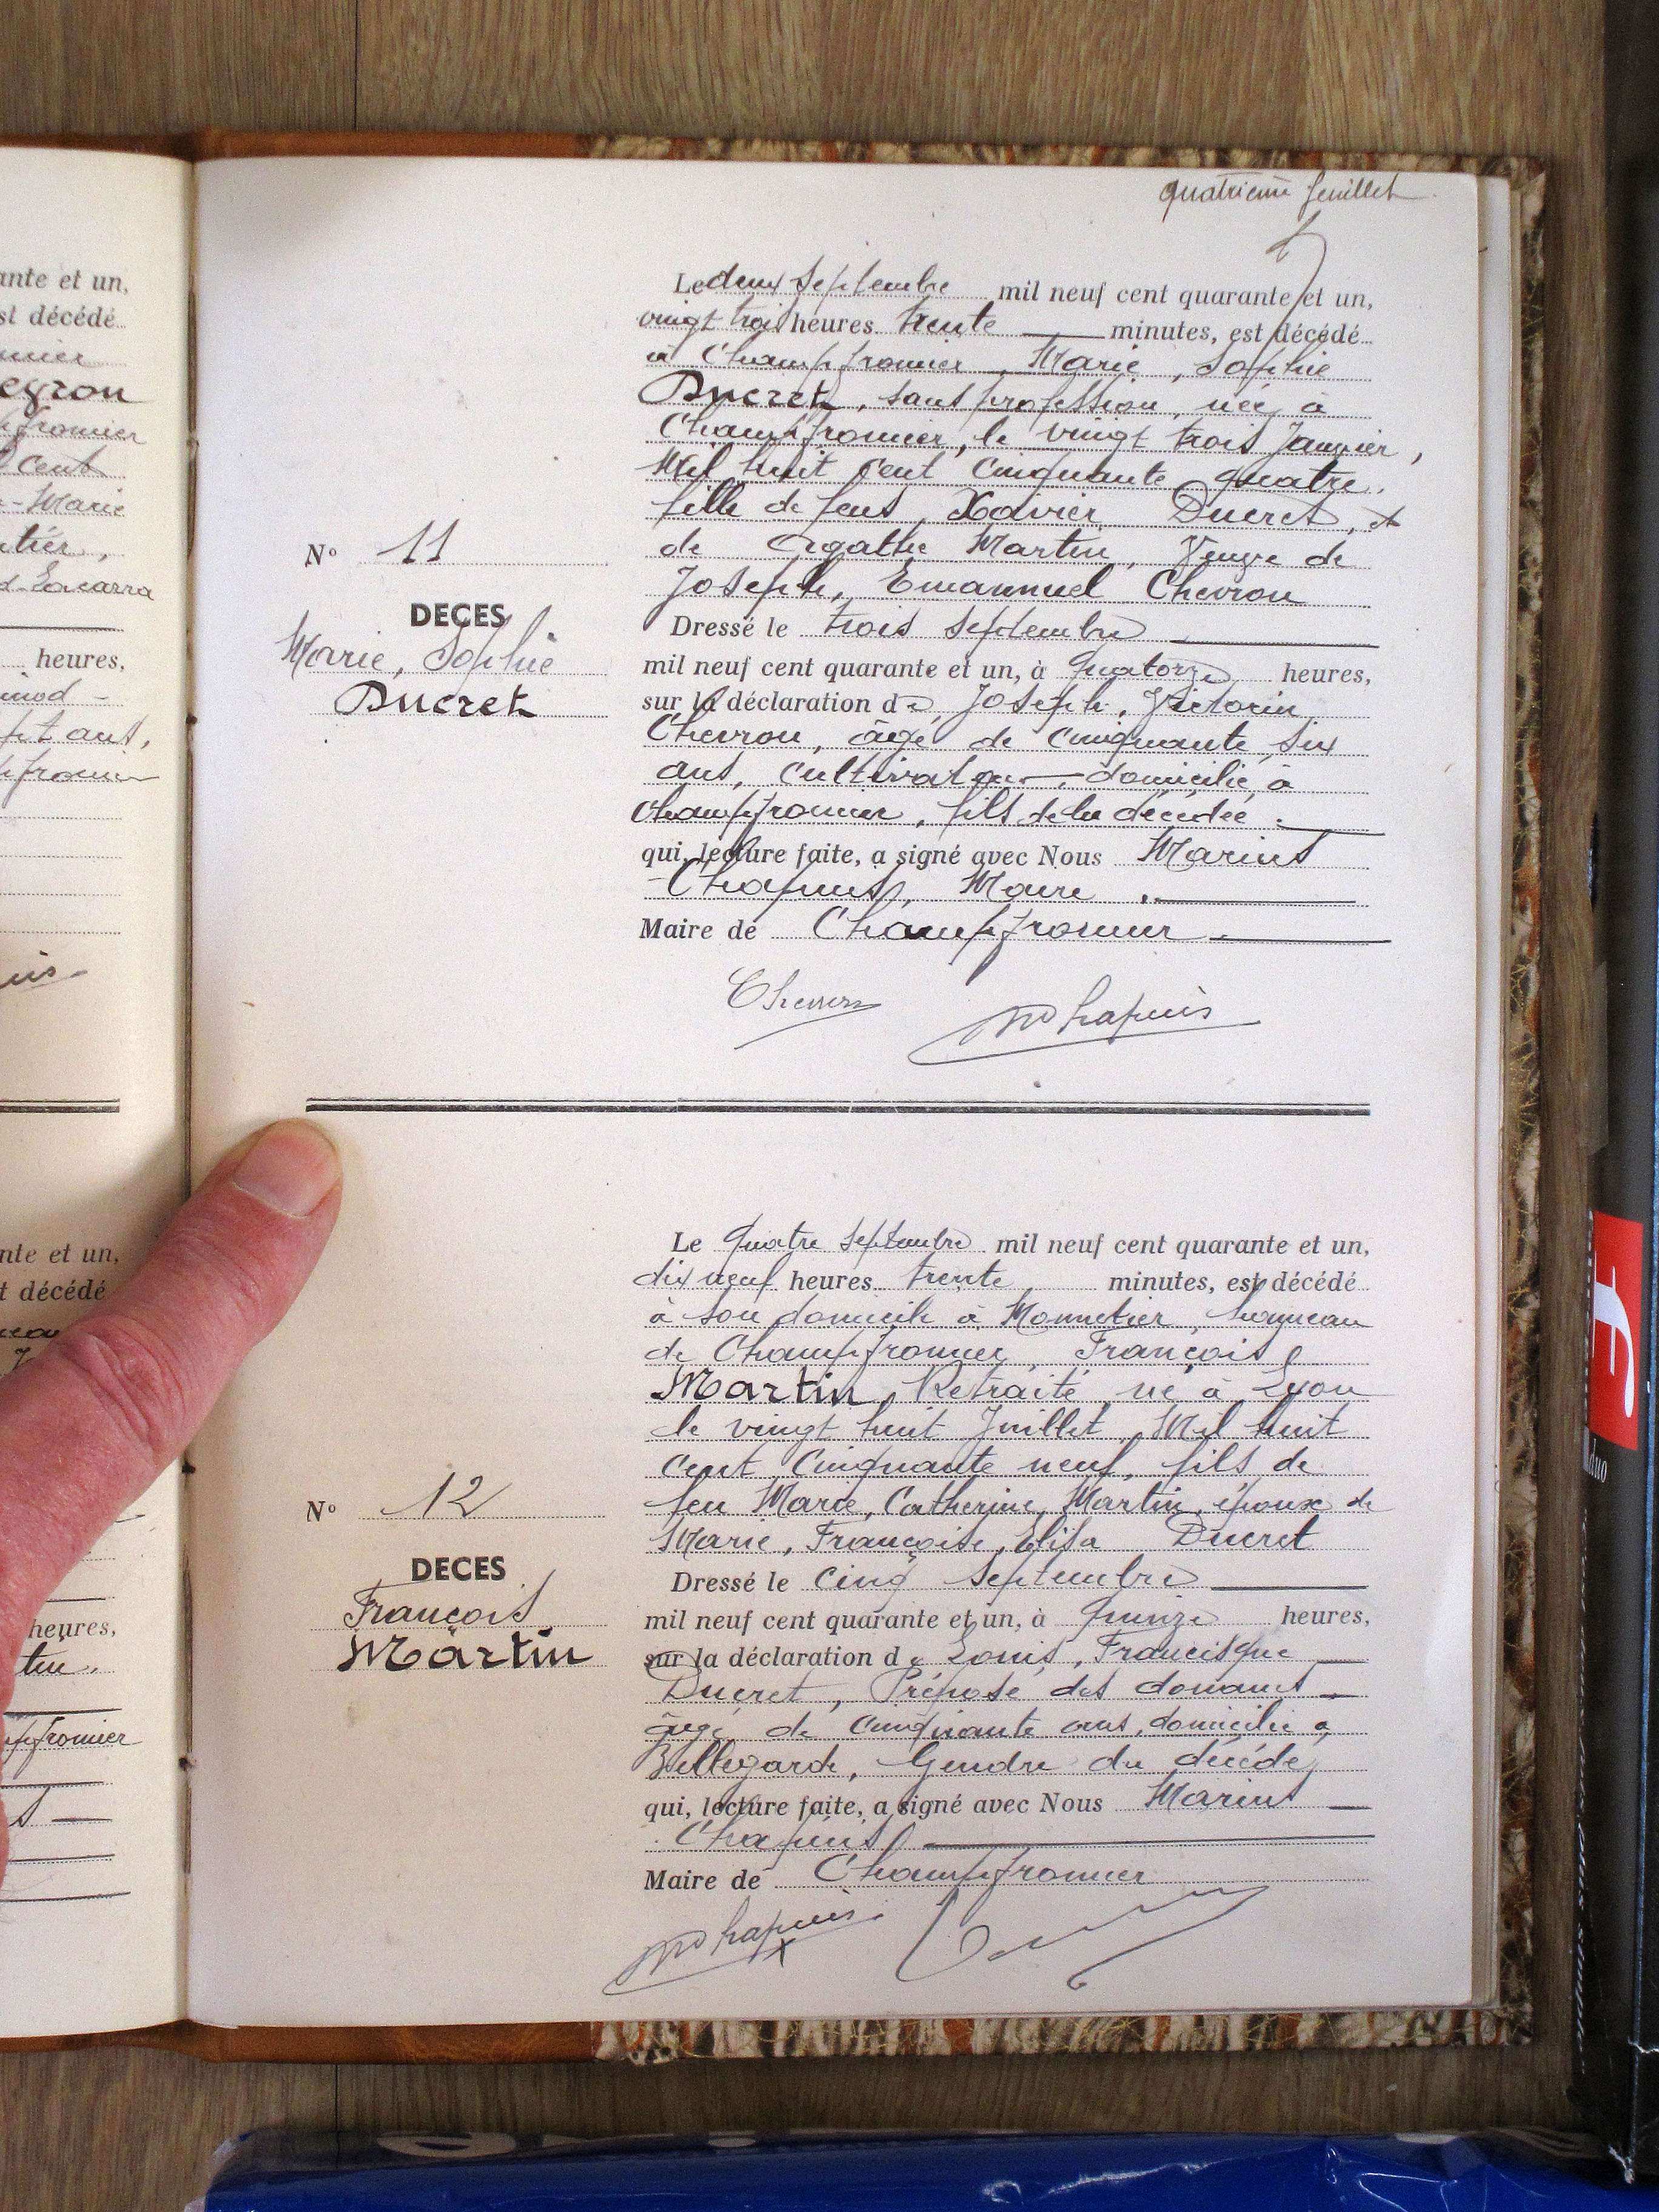 quatrième feuillet
Le deux Septembre mil neuf cent quarante et un,
vingt trois heures trente minutes, est décédé
à Champfromier, Marie, Sophie
Ducret, sans profession, née à
Champfromier, le vingt trois Janvier,
Mil huit cent cinquante quatre.
fille de feus, Xavier Ducret, et
de Agathe Martin, Veuve de
Joseph, Emannuel Chevron
N° 11
DECES
Marie, Sophie
Ducret
Dressé le trois Septembre
mil neuf cent quarante et un, à quatorze heures,
sur la déclaration de Joseph, Victorin
Chevron, âgé de cinquante six
ans, cultivateur domicilié à
Champfromier, fils de la décédée.
qui, lecture faite, a signé avec Nous Marius
Chapuis, Maire.
Maire de Champfromier
Chevron
M Chapuis
Le quatre Septembre mil neuf cent quarante et un,
dix neuf heures trente minutes, est décédé
à son domicile à Monnetier, hameau
de Champfromier, François
Martin, Retraité, né à Lyon
le vingt huit Juillet, Mil huit
cent cinquante neuf, fils de
feu Marie, Catherine, Martin, époux de
Marie, Françoise, Elisa Ducret
N° 12
DECES
François
Martin
Dressé le cinq Septembre
mil neuf cent quarante et un, à quinze heures,
sur la déclaration de Louis, Francisque
Ducret, Préposé des douanes
âgé de cinquante ans, domicilié à
Bellegarde, Gendre du décédé,
qui, lecture faite, a signé avec Nous Marius
Chapuis
Maire de Champfromier
M Chapuis
ante et un,
st décédé
eyron
fromier
cent
-Marie
tier,
heures,
pt ans,
nte et un,
t décédé
heures,
tin.
pfromier
duo